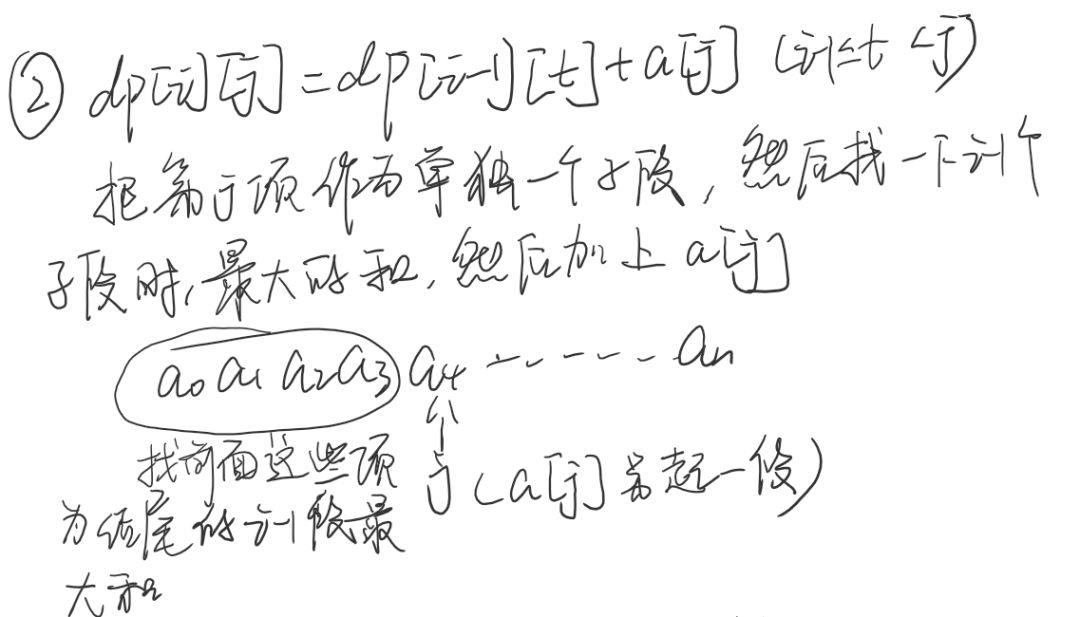 ② dp[i][j] = dp[i-1][t] + a[j] (i-1≤t<j)
把第j项作为单独一个子段，然后找一下i-1个
子段时，最大的和，然后加上a[j]
a0 a1 a2 a3 a4 ------ an
找前面这些项 j (a[j]另起一段)
为结尾的i-1段最
大和